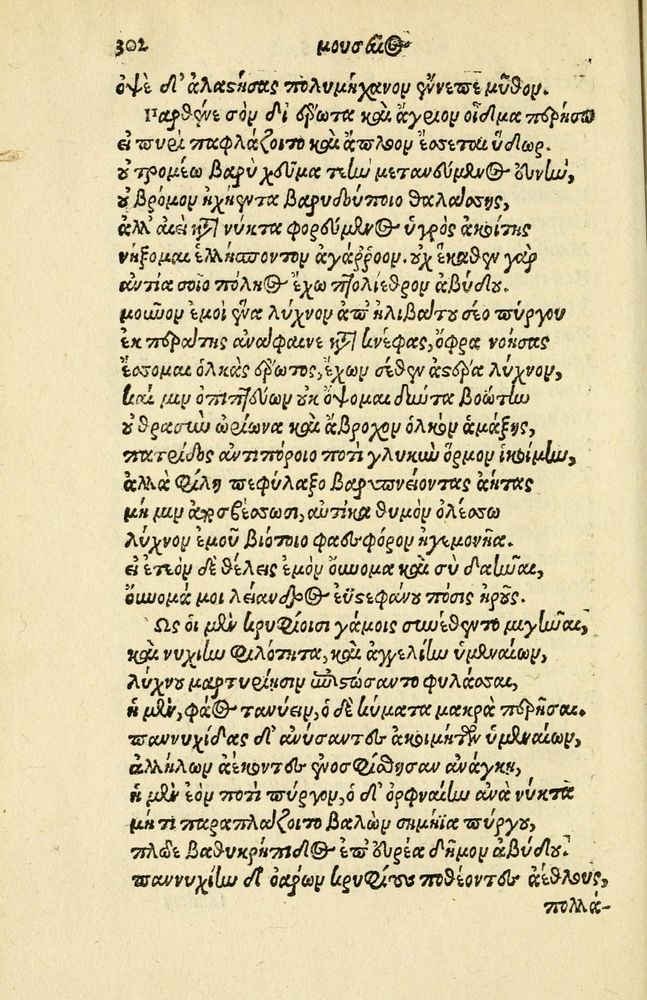 302 μουσαίȣ
ὀψὲ δ' ἀλαστήσας πολυμήχανον ἔννεπε μῦθον.
Παρθένε σὸν δι' ἔρωτα καὶ ἄγριον οἶδμα περήσω
εἰ πυρὶ παφλάζοιτο καὶ ἄπλοον ἔσσεται ὕδωρ.
οὐ τρομέω βαρὺ χεῦμα τεὴν μετανεύμενος εὐνὴν,
οὐ βρόμον ἠχήεντα βαρυδούποιο θαλάσσης,
ἀλλ' ἀεὶ κατὰ νύκτα φορεύμενος ὑγρὸς ἀκοίτης
νήξομαι ἑλλήσποντον ἀγάῤῥοον. οὐχ ἕκαθεν γὰρ
ἀντία σοῖο πόληος ἔχω πτολίεθρον ἀβύδου.
μοῦνον ἐμοὶ ἕνα λύχνον ἀπ' ἠλιβάτου σέο πύργου
ἐκ περάτης ἀνάφαινε κατὰ κνέφας, ὄφρα νοήσας
ἔσσομαι ὁλκὰς ἔρωτος, ἔχων σέθεν ἀστέρα λύχνον,
καί μιν ὀπιπτεύων οὐκ ὄψομαι δύντα βοώτην
οὐ θρασὺν ὠρίωνα καὶ ἄβροχον ὁλκὸν ἁμάξης,
πατρίδος ἀντιπόροιο ποτὶ γλυκὺν ὅρμον ἱκοίμην,
ἀλλὰ φίλη πεφύλαξο βαρυπνείοντας ἀήτας
μή μιν ἀποσβέσσωσι, αὐτίκα θυμὸν ὀλέσσω
λύχνον ἐμοῦ βιότοιο φαεσφόρον ἡγεμονῆα.
εἰ ἐτεὸν δὲ θέλεις ἐμὸν οὔνομα καὶ σὺ δαῆναι,
οὔνομά μοι λέανδρος ἐϋστεφάνου πόσις ἡροῦς.
Ὣς οἱ μὲν κρυφίοισι γάμοις συνέθεντο μιγῆναι,
καὶ νυχίην φιλότητα, καὶ ἀγγελίην ὑμεναίων,
λύχνου μαρτυρίῃσιν ἐπιστώσαντο φυλάσσειν,
ἡ μὲν, φάος τανύειν, ὁ δὲ κύματα μακρὰ περῆσαι.
παννυχίδας δ' ἀνύσαντες ἀκοιμήτων ὑμεναίων,
ἀλλήλων ἀέκοντες ἐνοσφίσθησαν ἀνάγκῃ,
ἡ μὲν ἑὸν ποτὶ πύργον, ὁ δ' ὀρφναίην ἀνὰ νύκτα
μή τι παραπλάζοιτο βαλὼν σημήϊα πύργου,
πλῶε βαθυκρήπιδος ἐπ' εὐρέα δῆμον ἀβύδου.
παννυχίων δ' ὀάρων κρυφίους ποθέοντες ἀέθλους,
πολλά-